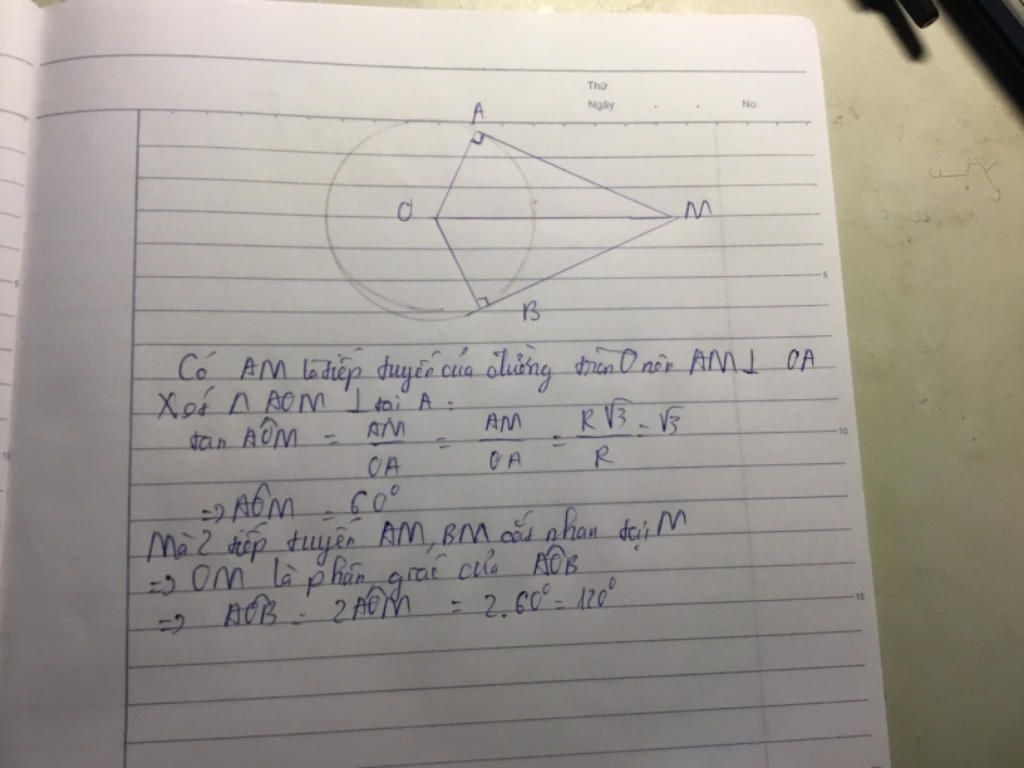 Thứ
Ngày . . No.
A
O
M
B
5
Có AM là tiếp tuyến của đường tròn O nên AM ⊥ OA
Xét △ AOM ⊥ tại A :
tan AÔM = AM/OA = AM/OA = R√3/R = √3
10
=> AÔM = 60°
Mà 2 tiếp tuyến AM, BM cắt nhau tại M
=> OM là phân giác của AÔB
=> AÔB = 2AÔM = 2.60° = 120°
15